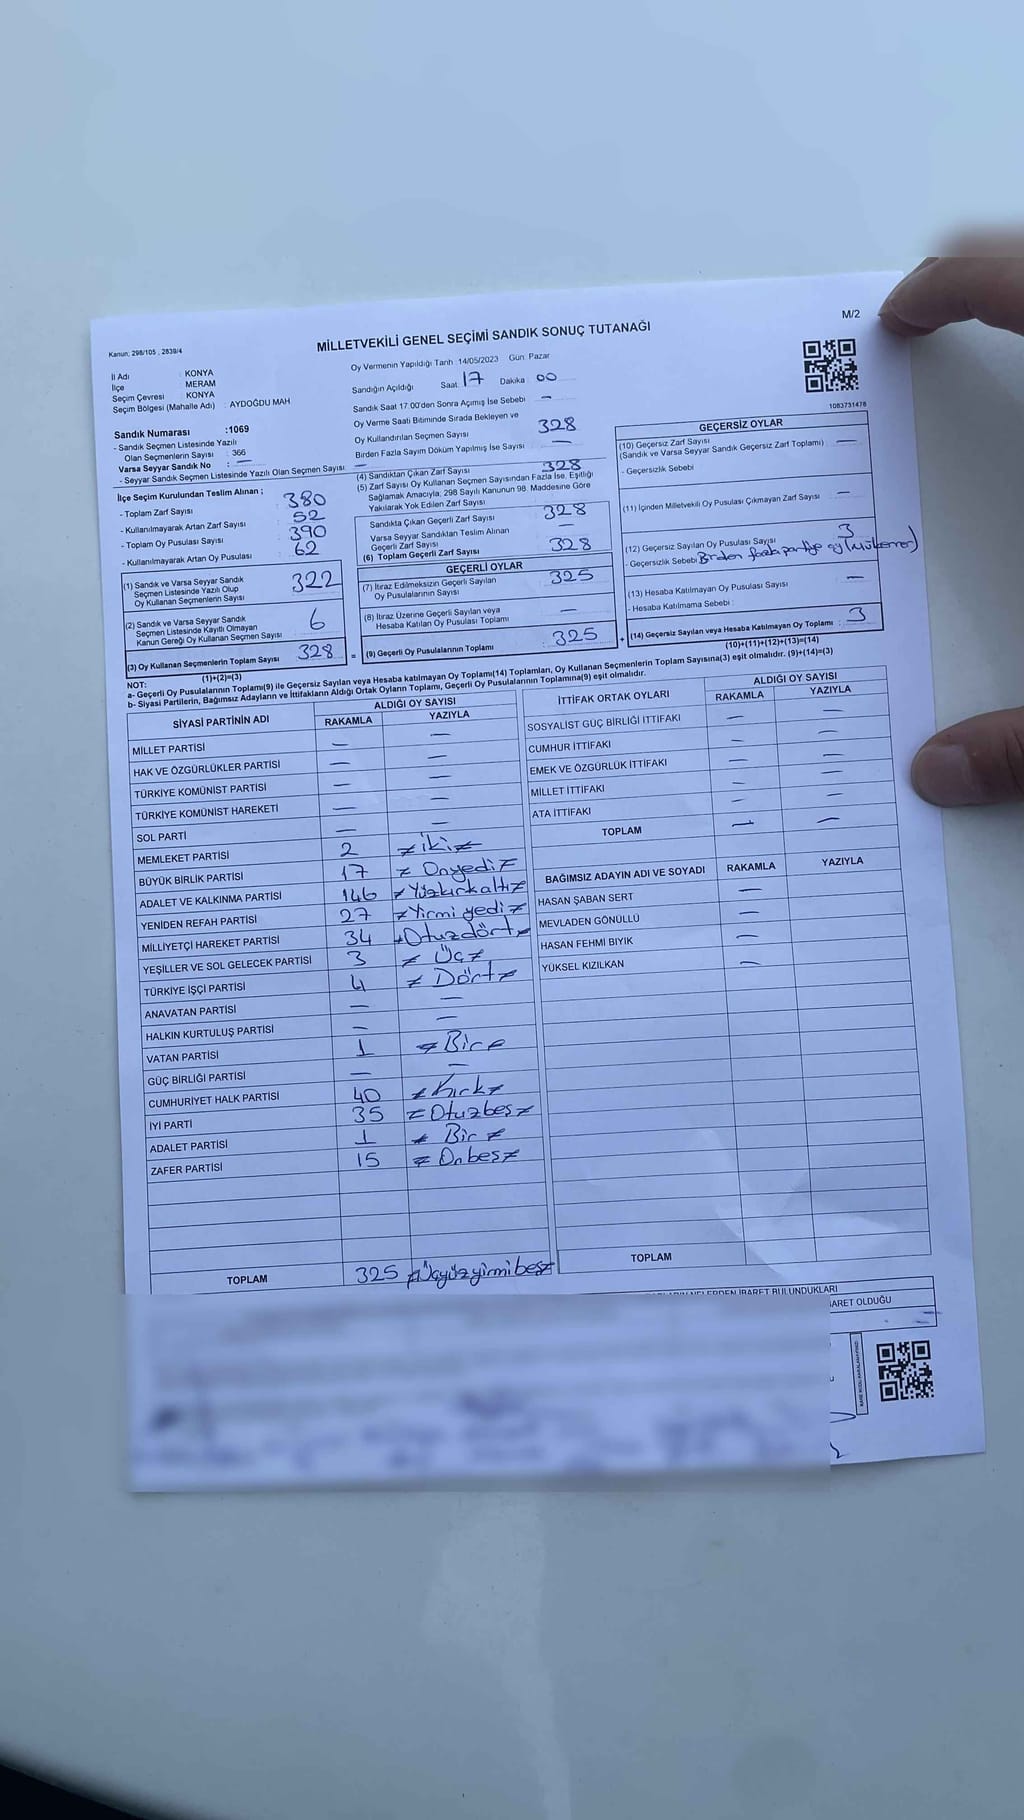 Kanun: 298/105 , 2839/4
MİLLETVEKİLİ GENEL SEÇİMİ SANDIK SONUÇ TUTANAĞI
M/2
İl Adı : KONYA
İlçe : MERAM
Seçim Çevresi : KONYA
Seçim Bölgesi (Mahalle Adı) : AYDOĞDU MAH
Sandık Numarası :1069
- Sandık Seçmen Listesinde Yazılı
Olan Seçmenlerin Sayısı : 366
Varsa Seyyar Sandık No : —
- Seyyar Sandık Seçmen Listesinde Yazılı Olan Seçmen Sayısı : —
İlçe Seçim Kurulundan Teslim Alınan ;
- Toplam Zarf Sayısı 380
- Kullanılmayarak Artan Zarf Sayısı 52
- Toplam Oy Pusulası Sayısı 390
- Kullanılmayarak Artan Oy Pusulası 62
(1) Sandık ve Varsa Seyyar Sandık
Seçmen Listesinde Yazılı Olup
Oy Kullanan Seçmenlerin Sayısı 322
(2) Sandık ve Varsa Seyyar Sandık
Seçmen Listesinde Kayıtlı Olmayan
Kanun Gereği Oy Kullanan Seçmen Sayısı 6
(3) Oy Kullanan Seçmenlerin Toplam Sayısı 328
(1)+(2)=(3)
Oy Vermenin Yapıldığı Tarih :14/05/2023 Gün: Pazar
Sandığın Açıldığı Saat: 17 Dakika : 00
Sandık Saat 17:00'den Sonra Açılmış İse Sebebi : —
Oy Verme Saati Bitiminde Sırada Bekleyen ve
Oy Kullandırılan Seçmen Sayısı 328
Birden Fazla Sayım Döküm Yapılmış İse Sayısı —
(4) Sandıktan Çıkan Zarf Sayısı 328
(5) Zarf Sayısı Oy Kullanan Seçmen Sayısından Fazla İse, Eşitliği
Sağlamak Amacıyla, 298 Sayılı Kanunun 98. Maddesine Göre
Yakılarak Yok Edilen Zarf Sayısı
Sandıkta Çıkan Geçerli Zarf Sayısı 328
Varsa Seyyar Sandıktan Teslim Alınan
Geçerli Zarf Sayısı —
(6) Toplam Geçerli Zarf Sayısı 328
GEÇERLİ OYLAR
(7) İtiraz Edilmeksizin Geçerli Sayılan
Oy Pusulalarının Sayısı 325
(8) İtiraz Üzerine Geçerli Sayılan veya
Hesaba Katılan Oy Pusulası Toplamı —
= (9) Geçerli Oy Pusulalarının Toplamı 325
1083731478
GEÇERSİZ OYLAR
(10) Geçersiz Zarf Sayısı
(Sandık ve Varsa Seyyar Sandık Geçersiz Zarf Toplamı) —
- Geçersizlik Sebebi
(11) İçinden Milletvekili Oy Pusulası Çıkmayan Zarf Sayısı —
(12) Geçersiz Sayılan Oy Pusulası Sayısı 3
- Geçersizlik Sebebi Birden fazla partiye oy (Mükerrer)
(13) Hesaba Katılmayan Oy Pusulası Sayısı —
- Hesaba Katılmama Sebebi :
+ (14) Geçersiz Sayılan veya Hesaba Katılmayan Oy Toplamı : 3
(10)+(11)+(12)+(13)=(14)
NOT:
a- Geçerli Oy Pusulalarının Toplamı(9) ile Geçersiz Sayılan veya Hesaba katılmayan Oy Toplamı(14) Toplamları, Oy Kullanan Seçmenlerin Toplam Sayısına(3) eşit olmalıdır. (9)+(14)=(3)
b- Siyasi Partilerin, Bağımsız Adayların ve İttifakların Aldığı Ortak Oyların Toplamı, Geçerli Oy Pusulalarının Toplamına(9) eşit olmalıdır.
SİYASİ PARTİNİN ADI ALDIĞI OY SAYISI
RAKAMLA YAZIYLA
MİLLET PARTİSİ — —
HAK VE ÖZGÜRLÜKLER PARTİSİ — —
TÜRKİYE KOMÜNİST PARTİSİ — —
TÜRKİYE KOMÜNİST HAREKETİ — —
SOL PARTİ — —
MEMLEKET PARTİSİ 2 ≠ iki ≠
BÜYÜK BİRLİK PARTİSİ 17 ≠ Onyedi ≠
ADALET VE KALKINMA PARTİSİ 146 ≠ Yüzkırkaltı ≠
YENİDEN REFAH PARTİSİ 27 ≠ Yirmi yedi ≠
MİLLİYETÇİ HAREKET PARTİSİ 34 ≠ Otuzdört ≠
YEŞİLLER VE SOL GELECEK PARTİSİ 3 ≠ Üç ≠
TÜRKİYE İŞÇİ PARTİSİ 4 ≠ Dört ≠
ANAVATAN PARTİSİ — —
HALKIN KURTULUŞ PARTİSİ — —
VATAN PARTİSİ 1 ≠ Bir ≠
GÜÇ BİRLİĞİ PARTİSİ — —
CUMHURİYET HALK PARTİSİ 40 ≠ Kırk ≠
İYİ PARTİ 35 ≠ Otuzbeş ≠
ADALET PARTİSİ 1 ≠ Bir ≠
ZAFER PARTİSİ 15 ≠ Onbeş ≠
TOPLAM 325 ≠ Üçyüzyirmibeş ≠
İTTİFAK ORTAK OYLARI ALDIĞI OY SAYISI
RAKAMLA YAZIYLA
SOSYALİST GÜÇ BİRLİĞİ İTTİFAKI — —
CUMHUR İTTİFAKI — —
EMEK VE ÖZGÜRLÜK İTTİFAKI — —
MİLLET İTTİFAKI — —
ATA İTTİFAKI — —
TOPLAM — —
BAĞIMSIZ ADAYIN ADI VE SOYADI RAKAMLA YAZIYLA
HASAN ŞABAN SERT —
MEVLADEN GÖNÜLLÜ —
HASAN FEHMİ BIYIK —
YÜKSEL KIZILKAN —
TOPLAM
İBARET BULUNDUKLARI
İBARET OLDUĞU